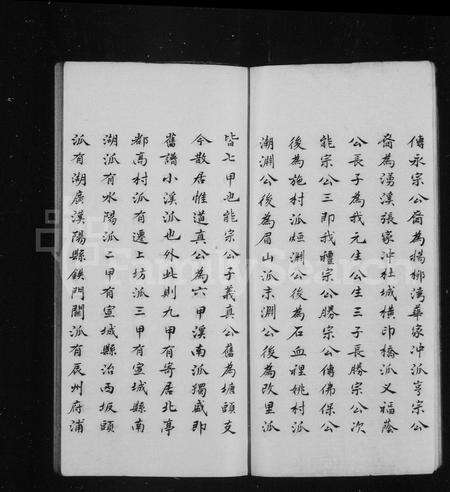 傳永宗公裔為楊柳灣華家冲派亨宗公
裔為湧漢張家冲杜城橫印橋派义福蔭
公長子為我元生公生三子長勝宗公次
能宗公三即我禮宗公勝宗公傳佛保公
後為施村派烜淵公後為石血裡姚村派
湖淵公後為眉山派末淵公後為改里派
皆七甲也能宗公子義真公舊為塘頤支
今散居惟道真公為六甲漢南派獨盛即
舊譜小溪派也外此則九甲有寄居北亭
都高村派有遷上坊派三甲有宣城縣南
湖派有水陽派二甲有宣城縣治西坂頤
派有湖廣漢陽縣鎮門關派有辰州府浦